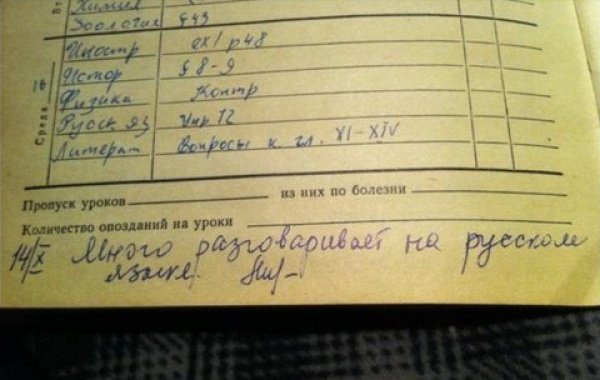 Химия
Зоология §43
Иностр ex1 p48
Истор § 8-9
Физика Контр
Русск яз Упр 12
Литерат Вопросы к гл. XI-XIV
Среда 16
Пропуск уроков из них по болезни
Количество опозданий на уроки
14/X Много разговаривает на русском
языке.